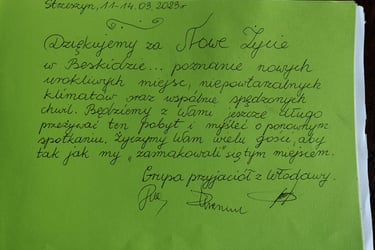 Strzeszyn, 11-14.03.2023r
Dziękujemy za Nowe Życie
w Beskidzie... poznanie nowych
urokliwych miejsc, niepowtarzalnych
klimatów oraz wspólnie spędzonych
chwil. Będziemy z Wami jeszcze długo
przeżywać ten pobyt i myśleć o ponownym
spotkaniu. Życzymy Wam wielu gości, aby
tak jak my "zasmakowali się tym miejscem.
Grupa przyjaciół z Włodawy.